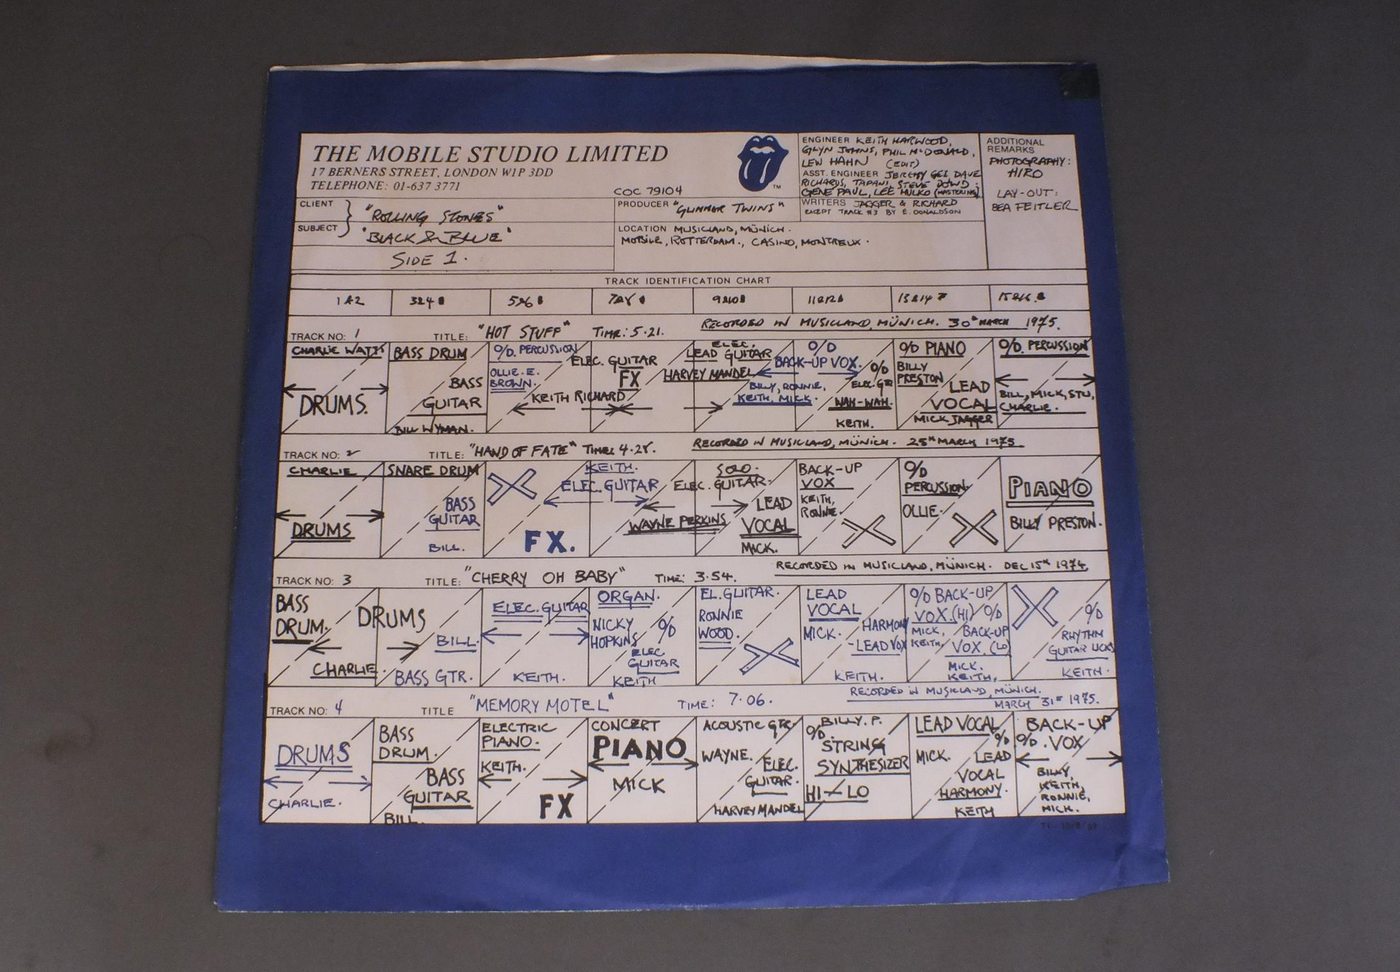 THE MOBILE STUDIO LIMITED
17 BERNERS STREET, LONDON W1P 3DD
TELEPHONE: 01-637 3771
COC 79104
TM
ENGINEER KEITH HARWOOD,
GLYN JOHNS, PHIL McDONALD,
LEW HAHN (EDIT)
ASST. ENGINEER JEREMY GEE DAVE
RICHARDS, TAPANI, STEVE DOWD;
GENE PAUL, LEE HULKO (MASTERING)
WRITERS JAGGER & RICHARD
EXCEPT TRACK #3 BY E. DONALDSON
ADDITIONAL
REMARKS
PHOTOGRAPHY:
HIRO
LAY-OUT:
BEA FEITLER
CLIENT
SUBJECT
"ROLLING STONES"
"BLACK & BLUE"
SIDE 1.
PRODUCER "GLIMMER TWINS"
LOCATION MUSICLAND, MÜNICH.
MOBILE, ROTTERDAM., CASINO, MONTREUX.
TRACK IDENTIFICATION CHART
1&2
3&4
5&6
7&8
9&10
11&12
13&14
15&16
TRACK NO: 1 TITLE: "HOT STUFF" TIME: 5·21. RECORDED IN MUSICLAND, MÜNICH. 30th MARCH 1975.
CHARLIE WATTS
DRUMS.
BASS DRUM
BASS
GUITAR
BILL WYMAN.
O/D. PERCUSSION
OLLIE. E.
BROWN.
ELEC. GUITAR
FX
KEITH RICHARD
ELEC.
LEAD GUITAR
HARVEY MANDEL
O/D
BACK-UP VOX.
BILLY, RONNIE,
KEITH, MICK.
O/D
ELEC. GTR
WAH-WAH.
KEITH.
O/D PIANO
BILLY
PRESTON
LEAD
VOCAL
MICK JAGGER
O/D. PERCUSSION
BILL, MICK, STU,
CHARLIE.
TRACK NO: 2 TITLE: "HAND OF FATE" TIME: 4·28. RECORDED IN MUSICLAND, MÜNICH. 25th MARCH 1975
CHARLIE
DRUMS
SNARE DRUM
BASS
GUITAR
BILL.
KEITH.
ELEC. GUITAR
FX.
SOLO.
ELEC. GUITAR.
WAYNE PERKINS
LEAD
VOCAL
MICK.
BACK-UP
VOX
KEITH,
RONNIE.
O/D
PERCUSSION
OLLIE.
PIANO
BILLY PRESTON.
TRACK NO: 3 TITLE: "CHERRY OH BABY" TIME: 3·54. RECORDED IN MUSICLAND, MÜNICH. DEC 15th 1974
BASS
DRUM.
CHARLIE
DRUMS
BILL.
BASS GTR.
ELEC. GUITAR
KEITH.
ORGAN.
NICKY
HOPKINS
O/D
ELEC
GUITAR
KEITH
EL. GUITAR.
RONNIE
WOOD.
LEAD
VOCAL
MICK.
HARMONY
-LEAD VOX
KEITH.
O/D BACK-UP
VOX. (HI)
MICK,
KEITH.
O/D
BACK-UP
VOX. (LO)
MICK.
KEITH.
O/D
RHYTHM
GUITAR LICKS
KEITH.
TRACK NO: 4 TITLE "MEMORY MOTEL" TIME: 7·06. RECORDED IN MUSICLAND, MÜNICH.
MARCH 31st 1975.
DRUMS
CHARLIE.
BASS
DRUM.
BASS
GUITAR
BILL.
ELECTRIC
PIANO.
KEITH.
FX
CONCERT
PIANO
MICK
ACOUSTIC GTR.
WAYNE.
ELEC.
GUITAR.
HARVEY MANDEL
BILLY. P.
O/D
STRING
SYNTHESIZER
HI-LO
LEAD VOCAL
MICK.
O/D
LEAD
VOCAL
HARMONY.
KEITH
BACK-UP
O/D. VOX
BILLY,
KEITH,
RONNIE,
MICK.